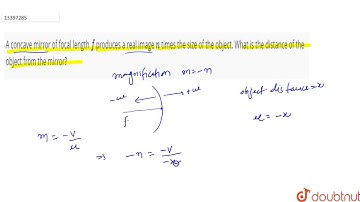 13397285
A concave mirror of focal length f produces a real image n times the size of the object. What is the distance of the
object from the mirror?
magnification m=-n
-ve +ve
object distance=x
f
u = -x
m = -v/u
⇒ -n = -v/-x
doubtnut